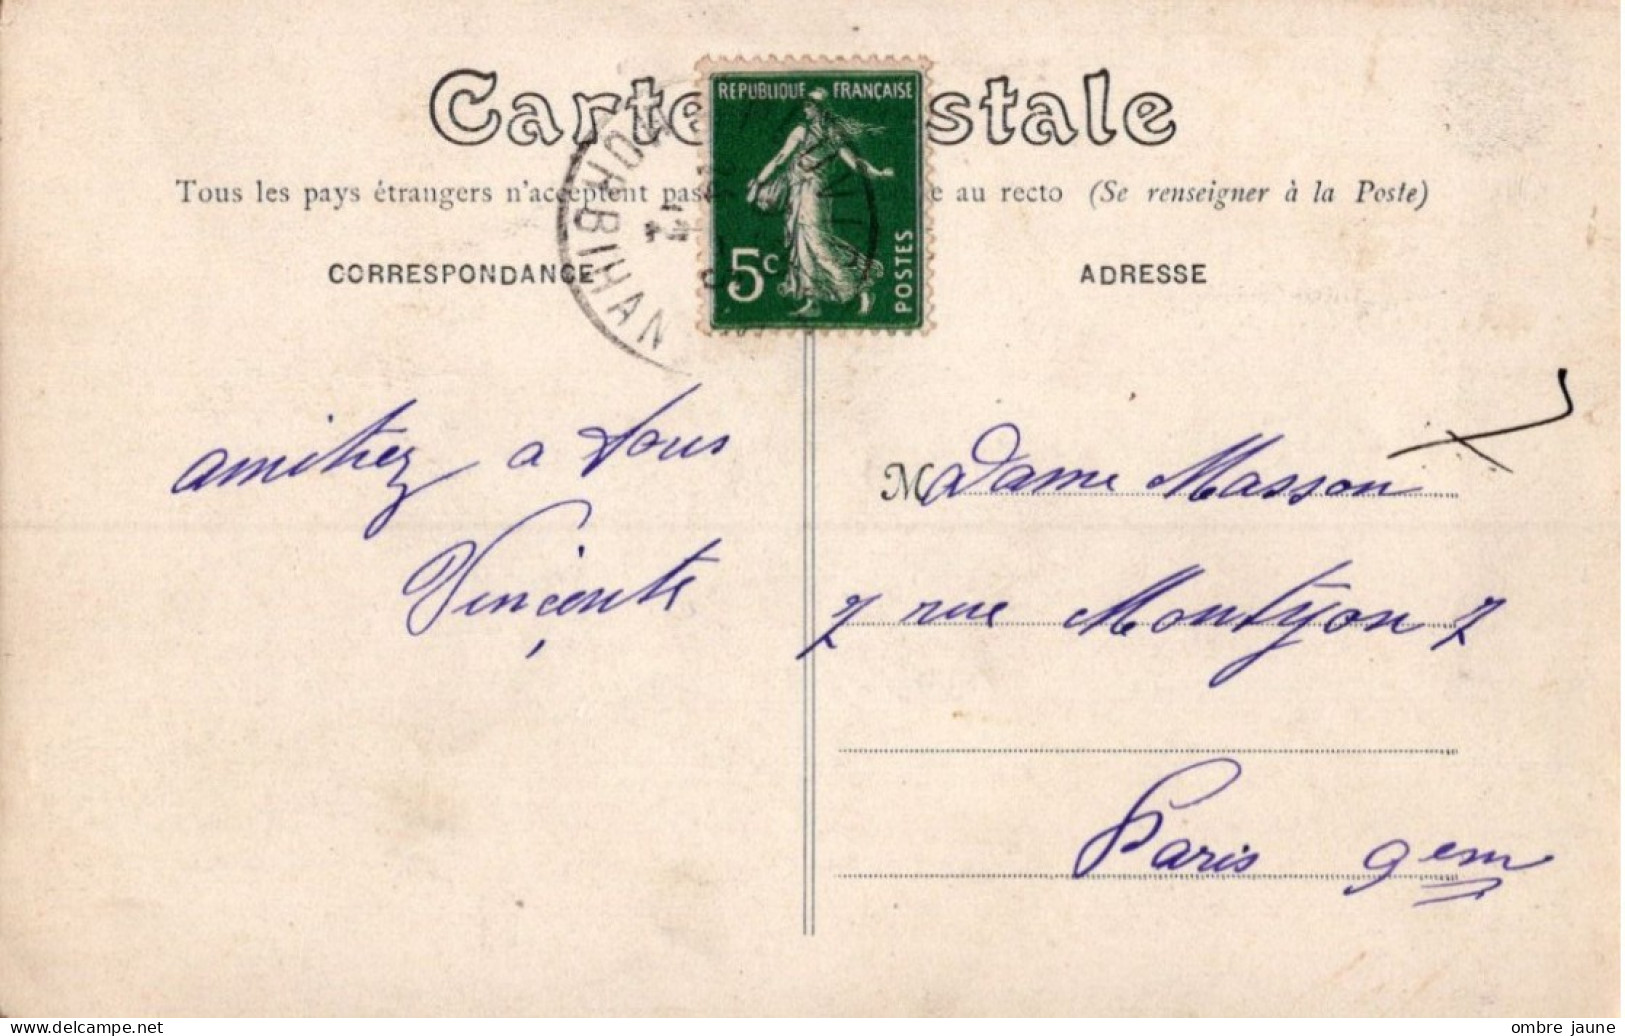 Carte stale
REPUBLIQUE FRANÇAISE
5c
POSTES
MORBIHAN
Tous les pays étrangers n'acceptent pas au recto (Se renseigner à la Poste)
CORRESPONDANCE
ADRESSE
amitiez a tous
Vinçente
Madame Masson
7 rue Montyon 7
Paris 9em
ombre jaune